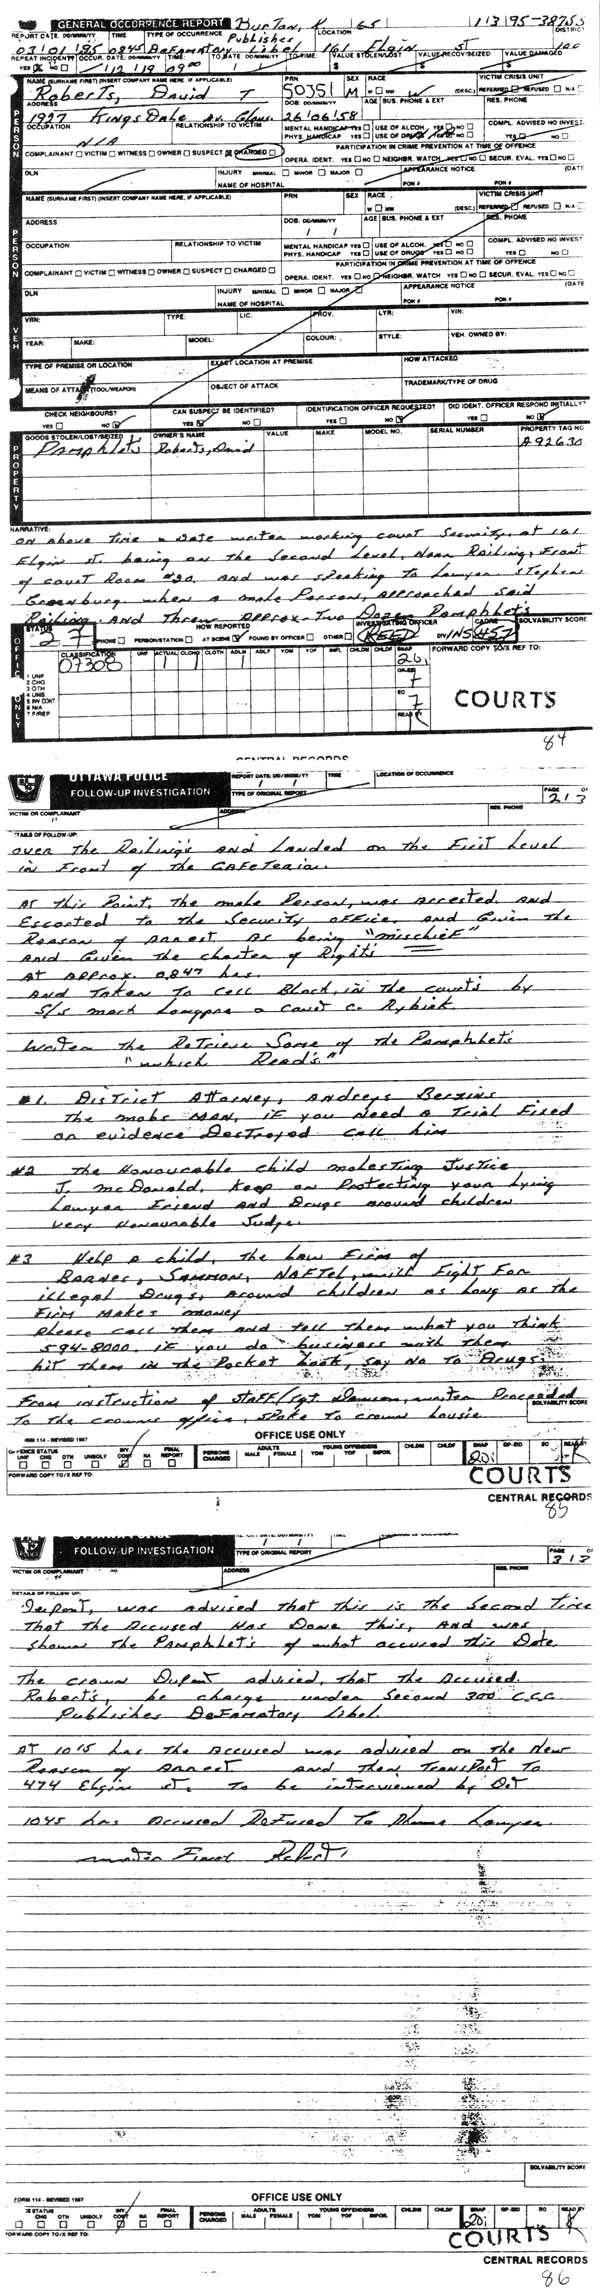 GENERAL OCCURRENCE REPORT
113 95-38755
REPORT DATE: DD/MM/YY TIME TYPE OF OCCURRENCE LOCATION DISTRICT
03 01 95 0845 Publishes Defamatory Libel 161 Elgin St 100
REPEAT INCIDENT OCCUR. DATE: DD/MM/YY TIME TO DATE DD/MM/YY TO TIME: VALUE STOLEN/LOST VALUE RECOV/SEIZED VALUE DAMAGED
YES NO
NAME (SURNAME FIRST) (INSERT COMPANY NAME HERE, IF APPLICABLE) PRN SEX RACE VICTIM CRISIS UNIT
Roberts, David T 50351 M W
ADDRESS DOB: DD/MM/YY AGE BUS. PHONE & EXT RES. PHONE
1927 Kings Dale Av. 26 06 58
OCCUPATION RELATIONSHIP TO VICTIM MENTAL HANDICAP YES NO USE OF ALCOH. YES NO COMPL. ADVISED NO INVEST
N/A PHYS. HANDICAP YES NO USE OF DRUGS YES NO
COMPLAINANT VICTIM WITNESS OWNER SUSPECT CHARGED PARTICIPATION IN CRIME PREVENTION AT TIME OF OFFENCE
OPERA. IDENT. YES NO NEIGHBR. WATCH YES NO SECUR. EVAL. YES NO
DLN INJURY MINIMAL MINOR MAJOR APPEARANCE NOTICE (DATE
NAME OF HOSPITAL PON #
NAME (SURNAME FIRST) (INSERT COMPANY NAME HERE, IF APPLICABLE) PRN SEX RACE VICTIM CRISIS UNIT
ADDRESS DOB: DD/MM/YY AGE BUS. PHONE & EXT RES. PHONE
OCCUPATION RELATIONSHIP TO VICTIM MENTAL HANDICAP YES NO USE OF ALCOH. YES NO COMPL. ADVISED NO INVEST
PHYS. HANDICAP YES NO USE OF DRUGS YES NO
COMPLAINANT VICTIM WITNESS OWNER SUSPECT CHARGED PARTICIPATION IN CRIME PREVENTION AT TIME OF OFFENCE
OPERA. IDENT. YES NO NEIGHBR. WATCH YES NO SECUR. EVAL. YES NO
DLN INJURY MINIMAL MINOR MAJOR APPEARANCE NOTICE (DATE
NAME OF HOSPITAL PON #
VRN: TYPE: LIC. PROV. LYR: VIN:
YEAR: MAKE: MODEL: COLOUR: STYLE: VEH. OWNED BY:
TYPE OF PREMISE OR LOCATION EXACT LOCATION AT PREMISE HOW ATTACKED
MEANS OF ATTACK (TOOL/WEAPON) OBJECT OF ATTACK TRADEMARK/TYPE OF DRUG
CHECK NEIGHBOURS? CAN SUSPECT BE IDENTIFIED? IDENTIFICATION OFFICER REQUESTED? DID IDENT. OFFICER RESPOND INITIALLY?
YES NO YES NO YES NO YES NO
GOODS STOLEN/LOST/SEIZED OWNER'S NAME VALUE MAKE MODEL NO. SERIAL NUMBER PROPERTY TAG NO
Pamphlets Roberts, David A92630
NARRATIVE:
On above time & date writer working court security, at 161
Elgin st. being on the second level, near Railing, Front
of court Room #20. and was speaking to Lawyer Stephen
Greenburg when a male Person, approached said
Railing, And Threw Approx. Two Dozen Pamphlet's
STATUS HOW REPORTED INVESTIGATING OFFICER CADRE SOLVABILITY SCORE
27 PHONE PERSON/STATION AT SCENE FOUND BY OFFICER OTHER REED DIV/INS 457
CLASSIFICATION UNF ACTUAL CLCHG CLOTH ADLM ADLF YOM YOF INFL CHLDM CHLDF SNAP FORWARD COPY TO/X REF TO:
07308 1 1 1 20i
COURTS
84
CENTRAL RECORDS
OTTAWA POLICE REPORT DATE: DD/MM/YY TIME LOCATION OF OCCURRENCE
FOLLOW-UP INVESTIGATION TYPE OF ORIGINAL REPORT PAGE OF
2 3
VICTIM OR COMPLAINANT ADDRESS RES. PHONE
DETAILS OF FOLLOW-UP:
over The Railing's and Landed on the First Level
in Front of the CAFeTeria.
At This Point, The male Person, was Arrested. and
Escorted to the Security office. and Given the
Reason of arrest. As being "mischief"
and Given the charter of Rights
at approx. 0847 hrs.
and Taken To Cell Block, in the court's by
S/s mark
Writer The Retrieve Some of the Pamphlet's
"which Read's"
#1. District Attorney, Andrejs Berzins
The mobs man, if you need a Trial Fixed
or evidence Destroyed call him
#2 The Honourable child molesting Justice
J. McDonald, Keep on Protecting your Lying
Lawyer Friend and Drugs around children
very Honourable Judge.
#3 Help a child, The Law Firm of
Barnes, Sammon, Naftel, will Fight For
illegal Drugs, around children as long as the
Firm makes money
please call them and tell them what you think
594-8000. if you do business with them
hit Them in the Pocket book, say No To Drugs.
From instruction of Staff/Sgt. writer Proceeded
To the crowns office, spoke to crown
FORM 114 - REVISED 1987 OFFICE USE ONLY SOLVABILITY SCORE
OFFENCE STATUS
UNF CHG OTH UNSOLV INV CONT NA FINAL REPORT PERSONS CHARGED ADULTS MALE FEMALE YOUNG OFFENDERS YOM YOF INFOR. CHLDM CHLDF SNAP 20i QP-EID SO READ BY
FORWARD COPY TO/X REF TO:
COURTS
CENTRAL RECORDS
85
FOLLOW-UP INVESTIGATION TYPE OF ORIGINAL REPORT PAGE OF
3 3
VICTIM OR COMPLAINANT ADDRESS RES. PHONE
DETAILS OF FOLLOW UP:
Dupont, was advised that this is the Second Time
That The Accused Has Done This, and was
shown The Pamphlet's of what occured this Date.
The crown Dupont advised, That the Accused
Robert's, be charge under Second 300 C.C.C
Publishes Defamatory Libel.
At 1015 hrs The Accused was advised on the New
Reason of Arrest and then Transport To
474 Elgin st. To be interviewed by Det
1045 hrs Accused Refused To Phone Lawyer.
SOLVABILITY SCORE
FORM 114 - REVISED 1987 OFFICE USE ONLY
STATUS
CHG OTH UNSOLV INV CONT NA FINAL REPORT PERSONS CHARGED ADULTS MALE FEMALE YOUNG OFFENDERS YOM YOF INFOR. CHLDM CHLDF SNAP 20i QP-EID SO READ BY
FORWARD COPY TO/X REF TO:
COURTS
CENTRAL RECORDS
86